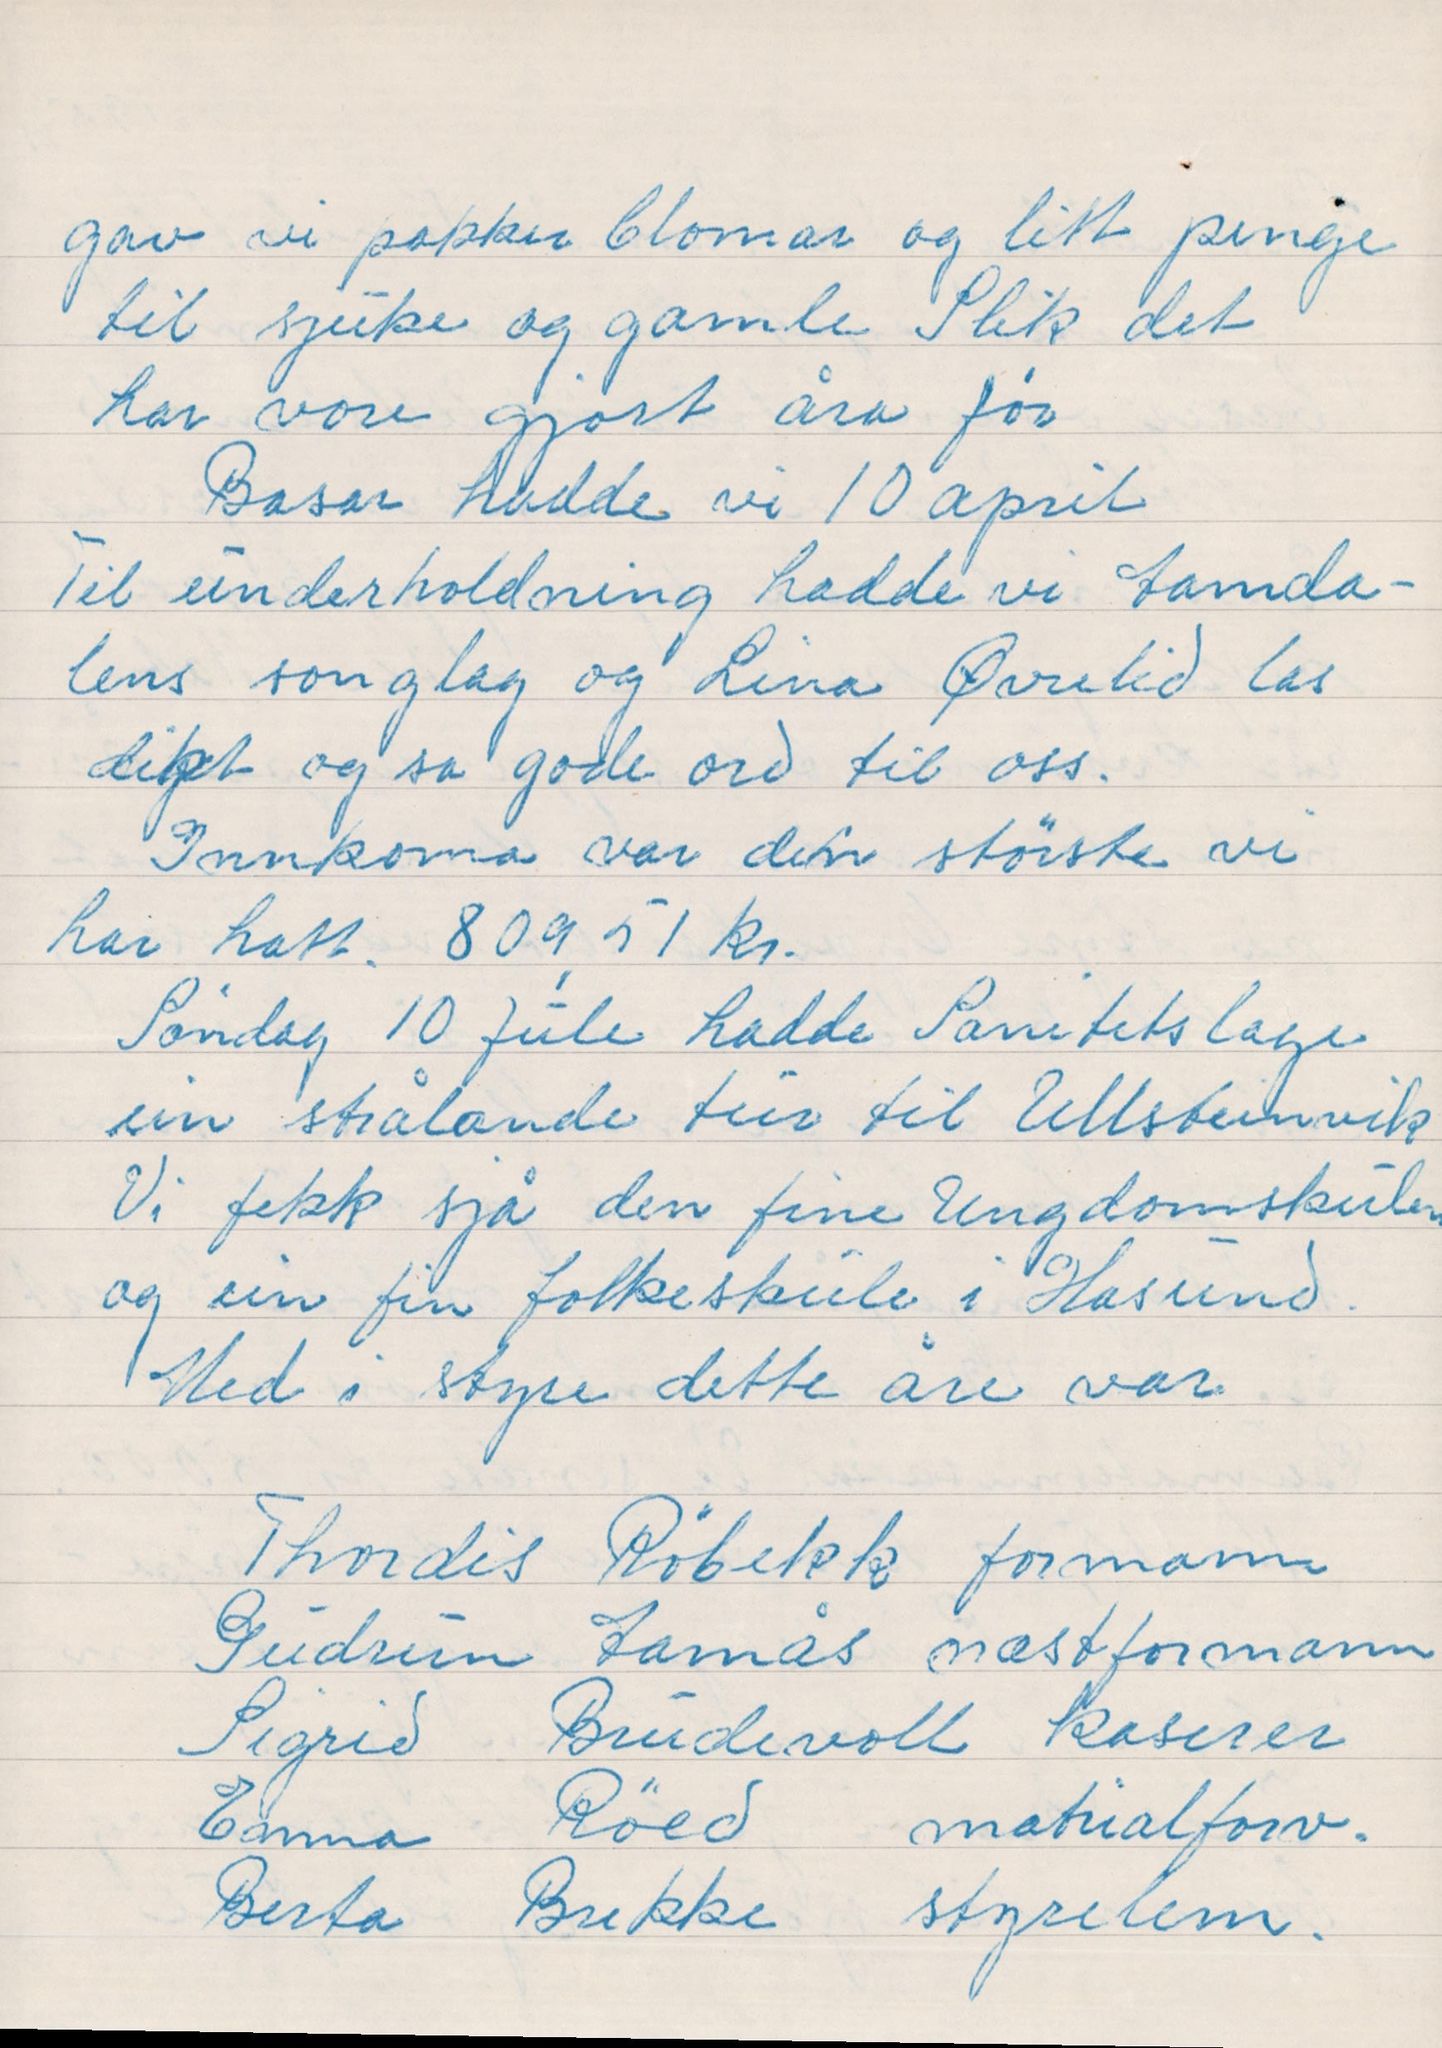 gav vi pakker blomar og litt penge
til sjuke og gamle Slik det
har vore gjort åra før
Basar hadde vi 10 april
Til underholdning hadde vi Hamda-
lens songlag og Lina Øvrelid las
dikt og sa gode ord til oss.
Innkoma var den störste vi
har hatt. 809,51 kr.
Søndag 10 jule hadde Sanitetslage
ein strålande tur til Ullsteinvik
Vi fekk sjå den fine Ungdomskulen
og ein fin folkeskule i Hasund.
Med i styre dette åre var
Thordis Röbekk formann
Gudrun Hamås næstformann
Sigrid Brudevoll kaserer
Emma Röed matrialforv.
Berta Brekke styrelem.